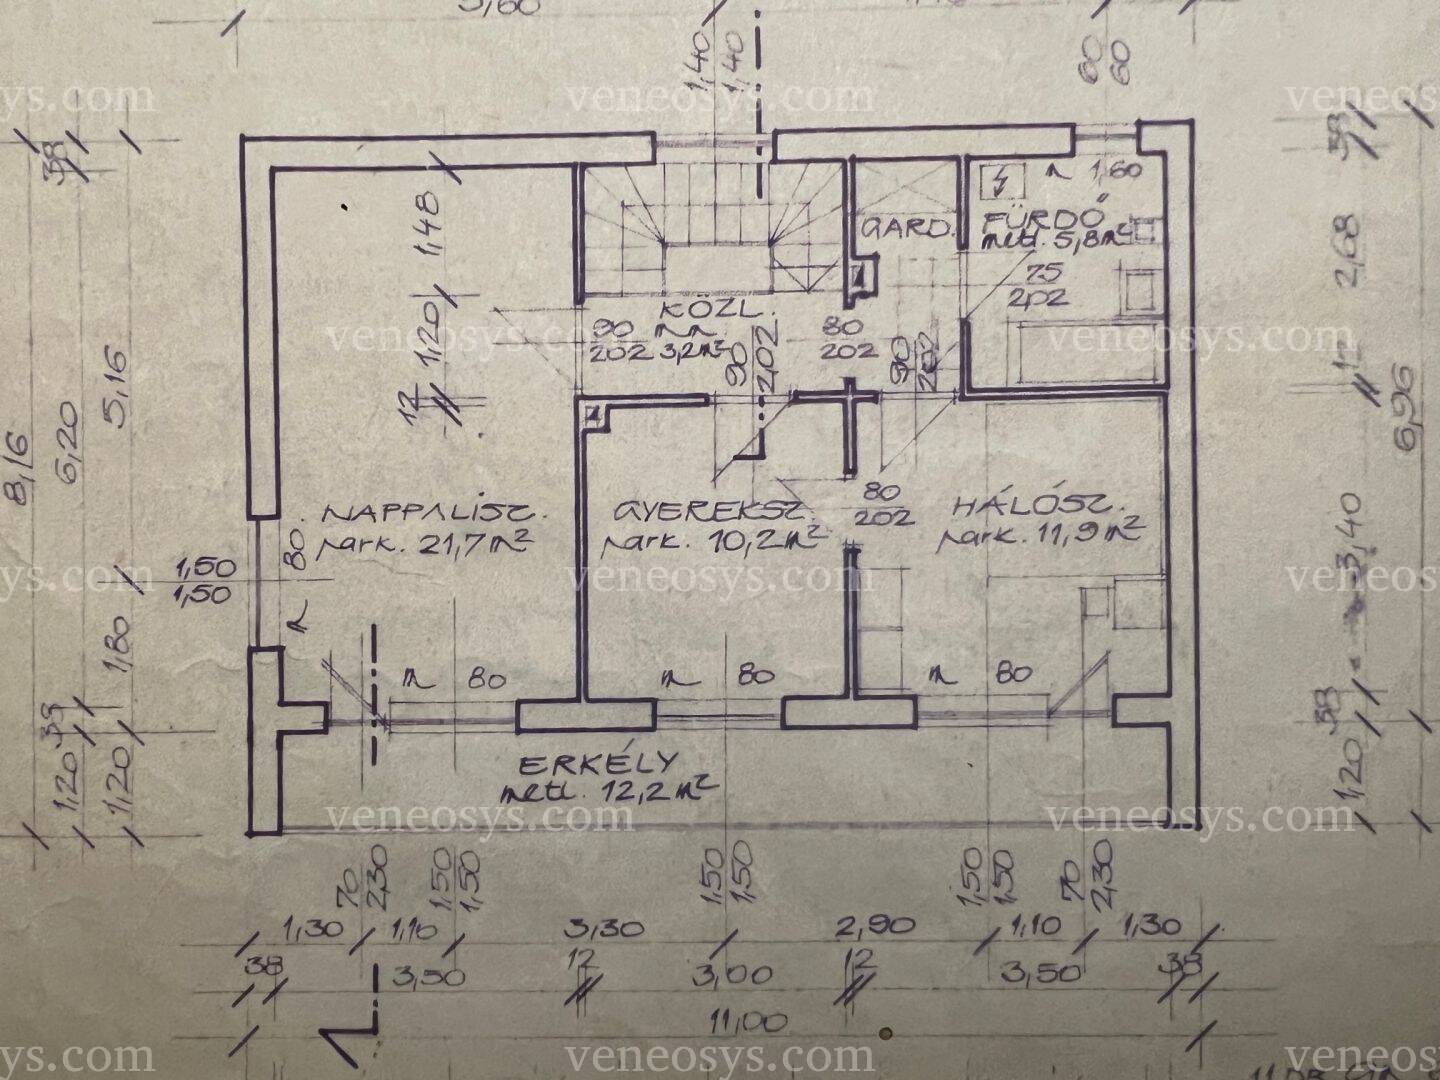 1,40
1,40
60
60
38
38
1,48
GARD.
m 1,60
FÜRDŐ
metl. 5,8m²
75
2,02
2,68
KÖZL.
3,2m²
90
202
80
202
90
2,02
90
202
1,20
12
12
5,16
6,20
8,16
6,96
NAPPALISZ.
park. 21,7m²
GYEREKSZ.
park. 10,2m²
80
202
HÁLÓSZ.
park. 11,9m²
3,40
1,50
1,50
m 80
1,80
m 80
m 80
m 80
38
38
1,20
1,20
1,20
ERKÉLY
metl. 12,2m²
70
2,30
1,50
1,50
1,50
1,50
1,50
1,50
70
2,30
1,30
1,10
3,30
2,90
1,10
1,30
38
3,50
12
3,00
12
3,50
38
11,00
veneosys.com
veneosys.com
veneosys.com
veneosys.com
veneosys.com
veneosys.com
veneosys.com
veneosys.com